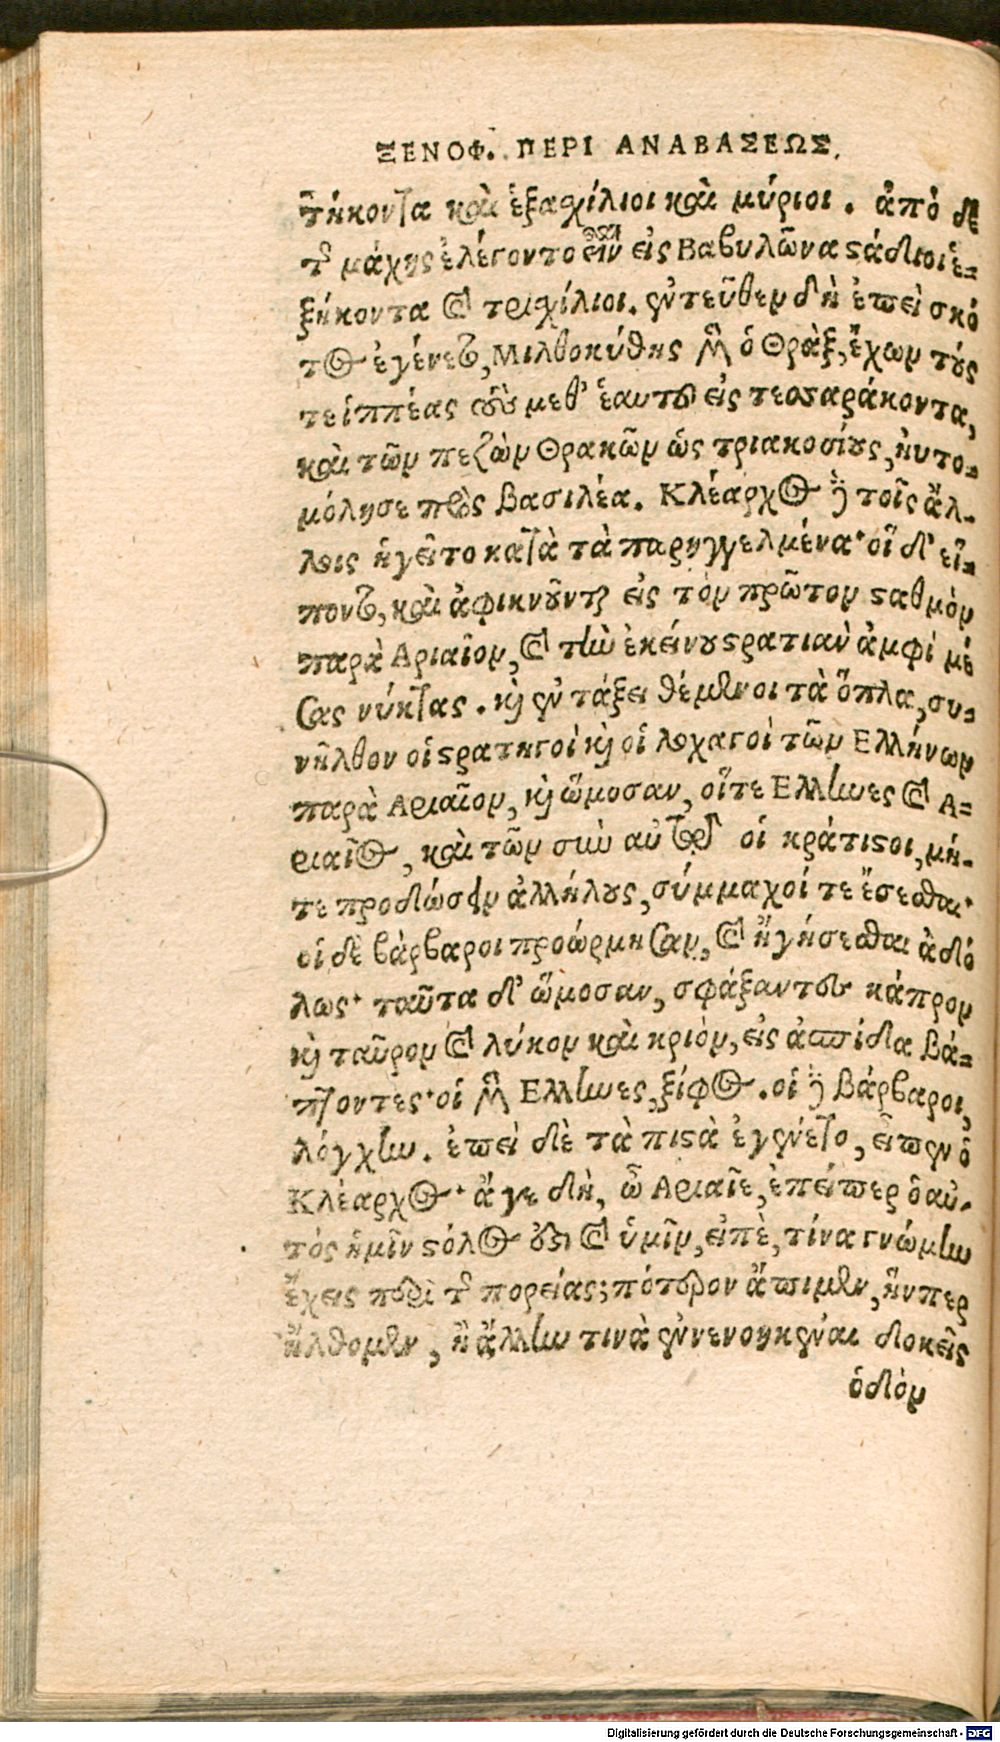 ΞΕΝΟΦ. ΠΕΡΙ ΑΝΑΒΑΣΕΩΣ.
τήκοντα καὶ ἑξαχίλιοι καὶ μύριοι. ἀπὸ δὲ
τῆς μάχης ἐλέγοντο εἶναι εἰς Βαβυλῶνα ϛάδιοι ἑ-
ξήκοντα καὶ τριχίλιοι. ἐντεῦθεν δὴ ἐπεὶ σκό
τος ἐγένετο, Μιλθοκύθης μὲν ὁ Θρὰξ, ἔχων τούς
τε ἱππέας τοὺς μεθ' ἑαυτοῦ εἰς τεσσαράκοντα,
καὶ τῶν πεζῶν Θρακῶν ὡς τριακοσίους, ηυτο-
μόλησε πρὸς βασιλέα. Κλέαρχος δὲ τοῖς ἄλ-
λοις ἡγεῖτο κατὰ τὰ παρηγγελμένα· οἳ δ' εἵ-
ποντο, καὶ ἀφικνοῦνται εἰς τὸν πρῶτον ϛαθμὸν
παρὰ Αριαῖον, καὶ τὴν ἐκείνου ϛρατιὰν ἀμφὶ μέ
σας νύκτας. καὶ ἐν τάξει θέμενοι τὰ ὅπλα, συ-
νῆλθον οἱ ϛρατηγοὶ καὶ οἱ λοχαγοὶ τῶν Ελλήνων
παρὰ Αριαῖον, καὶ ὤμοσαν, οἵτε Ελληνες καὶ Α-
ριαῖος, καὶ τῶν σὺν αὐτῷ οἱ κράτιϛοι, μή-
τε προδώσειν ἀλλήλους, σύμμαχοί τε ἔσεσθαι·
οἱ δὲ βάρβαροι προώρμησαν, καὶ ἡγήσεσθαι ἀδό
λως· ταῦτα δ' ὤμοσαν, σφάξαντες κάπρον
καὶ ταῦρον καὶ λύκον καὶ κριὸν, εἰς ἀσπίδα βά-
πτοντες· οἱ μὲν Ελληνες, ξίφος. οἱ δὲ βάρβαροι,
λόγχην. ἐπεὶ δὲ τὰ πιϛὰ ἐγένετο, εἶπεν ὁ
Κλέαρχος· ἄγε δὴ, ὦ Αριαῖε, ἐπείπερ ὁ αὐ-
τὸς ἡμῖν ϛόλος ἐϛὶ καὶ ὑμῖν, εἰπὲ, τίνα γνώμην
ἔχεις περὶ τῆς πορείας; πότερον ἄπιμεν, ἥνπερ
ἤλθομεν, ἢ ἄλλην τινὰ ἐννενοηκέναι δοκεῖς
ὁδὸν
Digitalisierung gefördert durch die Deutsche Forschungsgemeinschaft - DFG